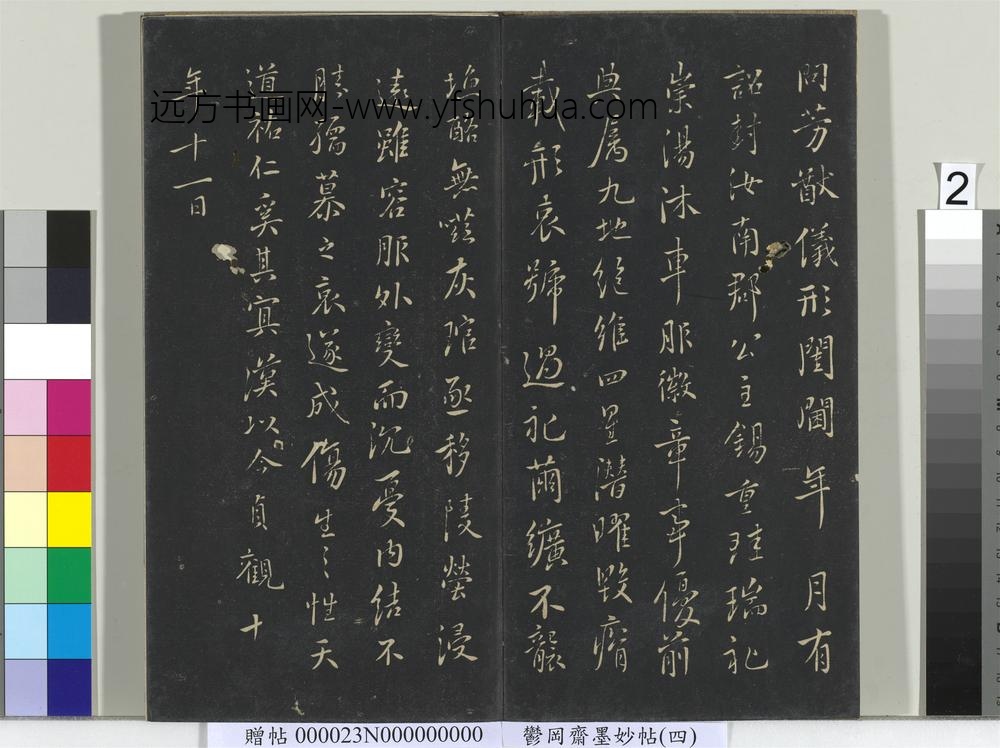 問芳猷儀形閨閫年月有
詔封汝南郡公主錫重珪瑞祀
崇湯沐車服徽章事優前
典屬九地絕維四星潛曜毀瘠
載形哀號過祀繭纊不襲
塩酪無嗞灰琯亟移陵塋浸
遠雖容服外變而沉憂內結不
勝孺慕之哀遂成傷生之性天
道祐仁奚其冥漠以今貞觀十
年十一日
远方书画网-www.yfshuhua.com
2
贈帖 000023N000000000
鬱岡齋墨妙帖(四)